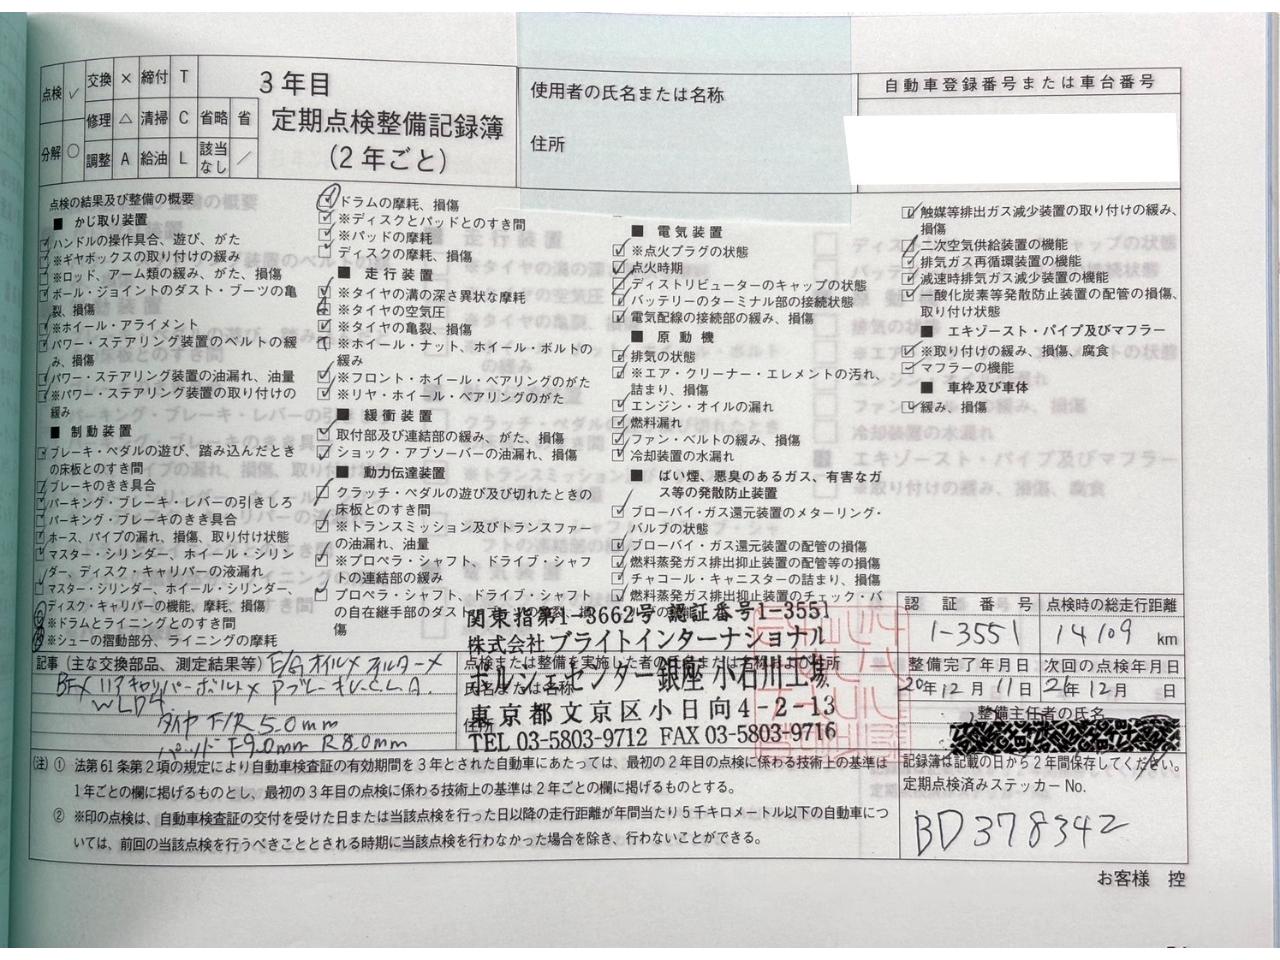 点検 ✓ 交換 × 締付 T
修理 △ 清掃 C 省略 省
分解 ○ 調整 A 給油 L 該当なし ／
3年目
定期点検整備記録簿
(2年ごと)
使用者の氏名または名称
住所
自動車登録番号または車台番号
点検の結果及び整備の概要
■ かじ取り装置
ハンドルの操作具合、遊び、がた
※ギヤボックスの取り付けの緩み
※ロッド、アーム類の緩み、がた、損傷
ボール・ジョイントのダスト・ブーツの亀
裂、損傷
※ホイール・アライメント
パワー・ステアリング装置のベルトの緩
み、損傷
パワー・ステアリング装置の油漏れ、油量
※パワー・ステアリング装置の取り付けの
緩み
■ 制動装置
ブレーキ・ペダルの遊び、踏み込んだとき
の床板とのすき間
ブレーキのきき具合
パーキング・ブレーキ・レバーの引きしろ
パーキング・ブレーキのきき具合
ホース、パイプの漏れ、損傷、取り付け状態
マスター・シリンダー、ホイール・シリン
ダー、ディスク・キャリパーの液漏れ
マスター・シリンダー、ホイール・シリンダー、
ディスク・キャリパーの機能、摩耗、損傷
※ドラムとライニングとのすき間
※シューの摺動部分、ライニングの摩耗
ドラムの摩耗、損傷
※ディスクとパッドとのすき間
※パッドの摩耗
ディスクの摩耗、損傷
■ 走行装置
※タイヤの溝の深さ異状な摩耗
※タイヤの空気圧
※タイヤの亀裂、損傷
※ホイール・ナット、ホイール・ボルトの
緩み
※フロント・ホイール・ベアリングのがた
※リヤ・ホイール・ベアリングのがた
■ 緩衝装置
取付部及び連結部の緩み、がた、損傷
ショック・アブソーバーの油漏れ、損傷
■ 動力伝達装置
クラッチ・ペダルの遊び及び切れたときの
床板とのすき間
※トランスミッション及びトランスファー
の油漏れ、油量
※プロペラ・シャフト、ドライブ・シャフ
トの連結部の緩み
プロペラ・シャフト、ドライブ・シャフト
の自在継手部のダスト
傷
■ 電気装置
※点火プラグの状態
点火時期
ディストリビューターのキャップの状態
バッテリーのターミナル部の接続状態
電気配線の接続部の緩み、損傷
■ 原動機
排気の状態
※エア・クリーナー・エレメントの汚れ、
詰まり、損傷
エンジン・オイルの漏れ
燃料漏れ
ファン・ベルトの緩み、損傷
冷却装置の水漏れ
■ ばい煙、悪臭のあるガス、有害なガ
ス等の発散防止装置
ブローバイ・ガス還元装置のメターリング・
バルブの状態
ブローバイ・ガス還元装置の配管の損傷
燃料蒸発ガス排出抑止装置の配管等の損傷
チャコール・キャニスターの詰まり、損傷
燃料蒸発ガス排出抑止装置のチェック・バ
触媒等排出ガス減少装置の取り付けの緩み、
損傷
二次空気供給装置の機能
排気ガス再循環装置の機能
減速時排気ガス減少装置の機能
一酸化炭素等発散防止装置の配管の損傷、
取り付け状態
■ エキゾースト・パイプ及びマフラー
※取り付けの緩み、損傷、腐食
マフラーの機能
■ 車枠及び車体
緩み、損傷
関東指第1-3662号 認証番号1-3551
株式会社ブライトインターナショナル
点検または整備を実施した者の氏名または名称および住所
ポルシェセンター銀座 小石川工場
氏名または名称
東京都文京区小日向4-2-13
住所
TEL 03-5803-9712 FAX 03-5803-9716
記事（主な交換部品、測定結果等）E/Gオイル× フィルター×
BF× リアキャリパーボルト× Pブレーキレバー C.L.A.
タイヤ F/R 5.0mm
パッド F9.0mm R8.0mm
認証番号 点検時の総走行距離
1-3551 14109 km
整備完了年月日 次回の点検年月日
20年12月11日 21年12月 日
整備主任者の氏名
記録簿は記載の日から2年間保存してください。
定期点検済みステッカーNo.
BD378342
(注) ① 法第61条第2項の規定により自動車検査証の有効期間を3年とされた自動車にあたっては、最初の2年目の点検に係わる技術上の基準は
1年ごとの欄に掲げるものとし、最初の3年目の点検に係わる技術上の基準は2年ごとの欄に掲げるものとする。
② ※印の点検は、自動車検査証の交付を受けた日または当該点検を行った日以降の走行距離が年間当たり5千キロメートル以下の自動車につ
いては、前回の当該点検を行うべきこととされる時期に当該点検を行わなかった場合を除き、行わないことができる。
お客様 控